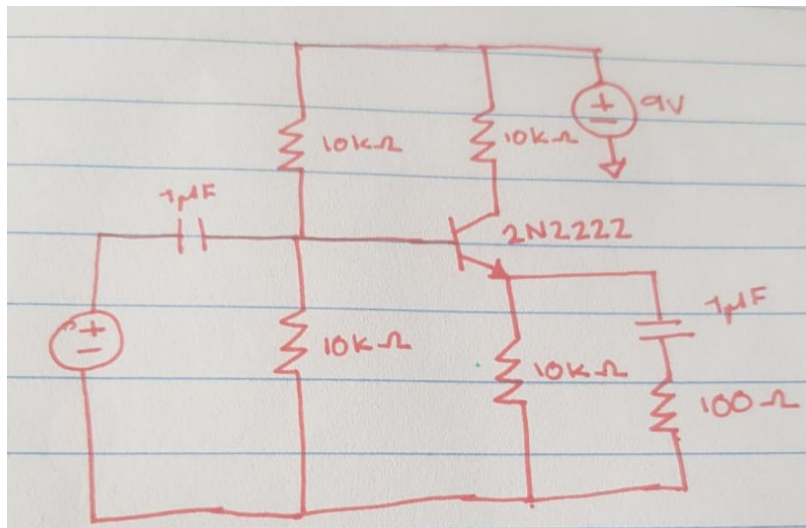 9V
10kΩ
10kΩ
1μF
2N2222
1μF
10kΩ
10kΩ
100Ω